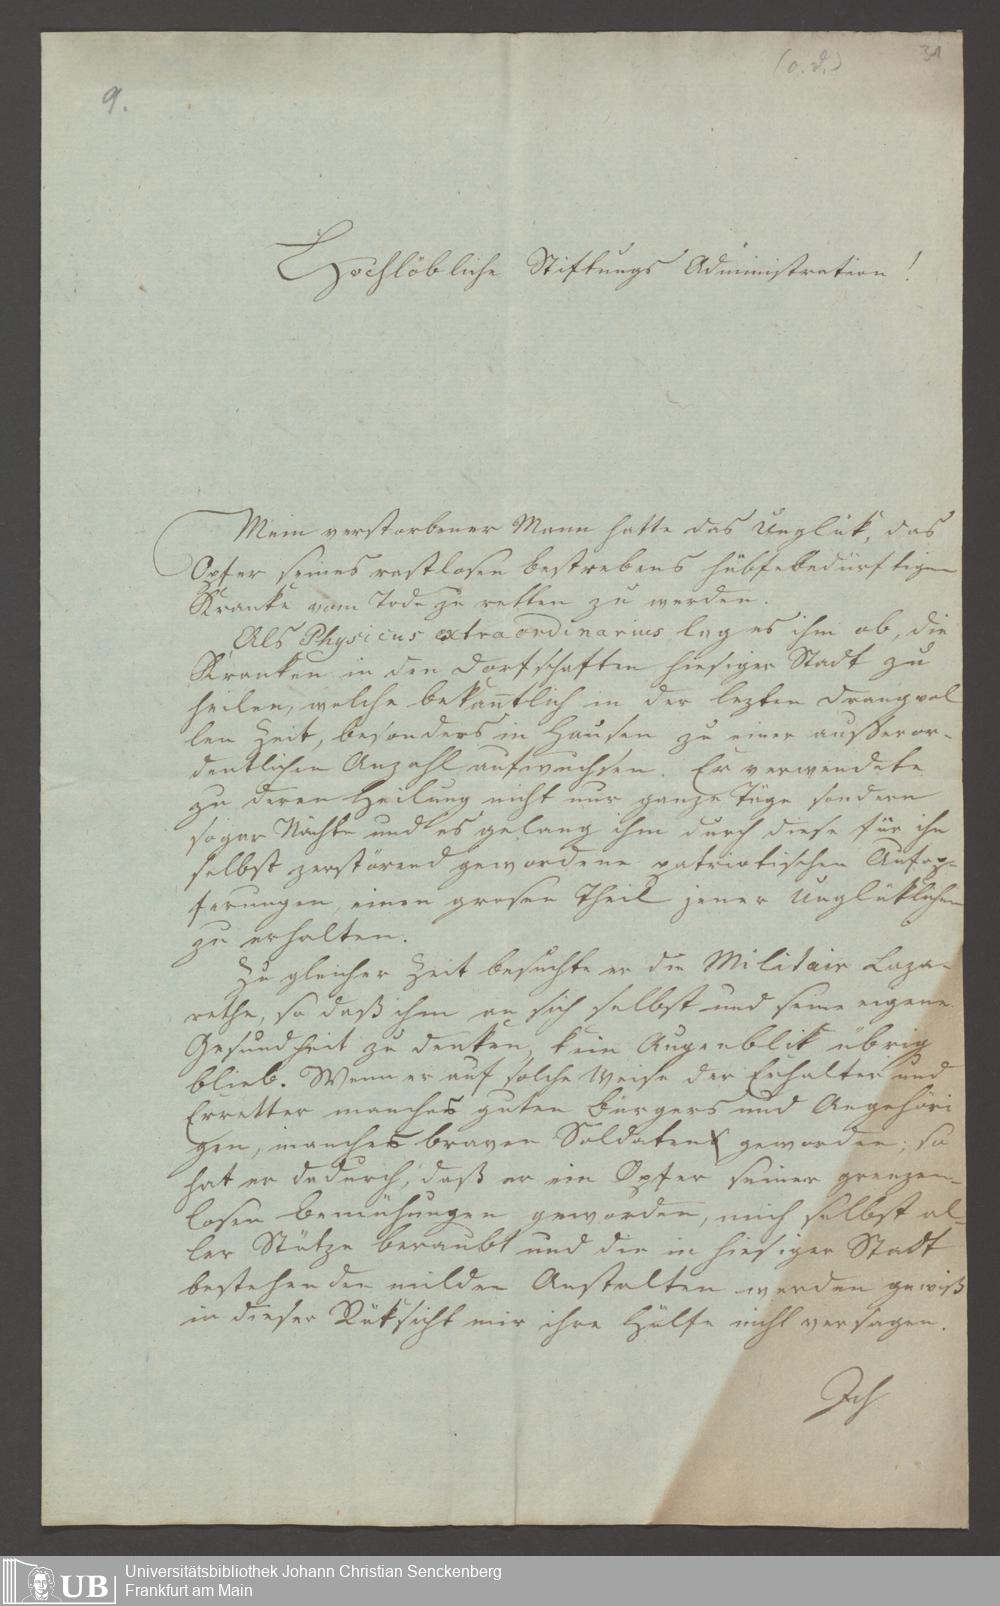 (o. D.)
31
9.
Hochlöbliche Stiftungs Administration!
Mein verstorbener Mann hatte das Unglük, das
Opfer seines rastlosen bestrebens hülfsbedürftige
Kranke vom Tode zu retten zu werden.
Als Physicus extraordinarius lag es ihm ob, die
Kranken in den Dorfschaften hiesiger Stadt zu
heilen, welche bekanntlich in der lezten drangvol
len Zeit, besonders in Hausen zu einer ausseror-
dentlichen Anzahl aufwuchsen. Er verwendete
zu deren Heilung nicht nur ganze Täge sondern
sogar Nächte und es gelang ihm durch diese für ihn
selbst zerstörend gewordene patriotischen Aufop-
ferungen, einen grosen Theil jener Unglüklichen
zu erhalten.
Zu gleicher Zeit besuchte er die Militair Laza-
rethe, so daß ihm an sich selbst und seine eigene
Gesundheit zu denken, kein Augenblik übrig
blieb. Wenn er auf solche Weise der Erhalter und
Erretter manches guten Bürgers und Angehöri
gen, manches braven Soldaten geworden; so
hat er dadurch, daß er ein Opfer seiner grenzen-
losen bemühungen geworden, mich selbst al-
ler Stütze beraubt und die in hiesiger Stadt
bestehenden milden Anstalten werden gewiß
in dieser Rüksicht mir ihre Hülfe nicht versagen.
Ich
UB
Universitätsbibliothek Johann Christian Senckenberg
Frankfurt am Main